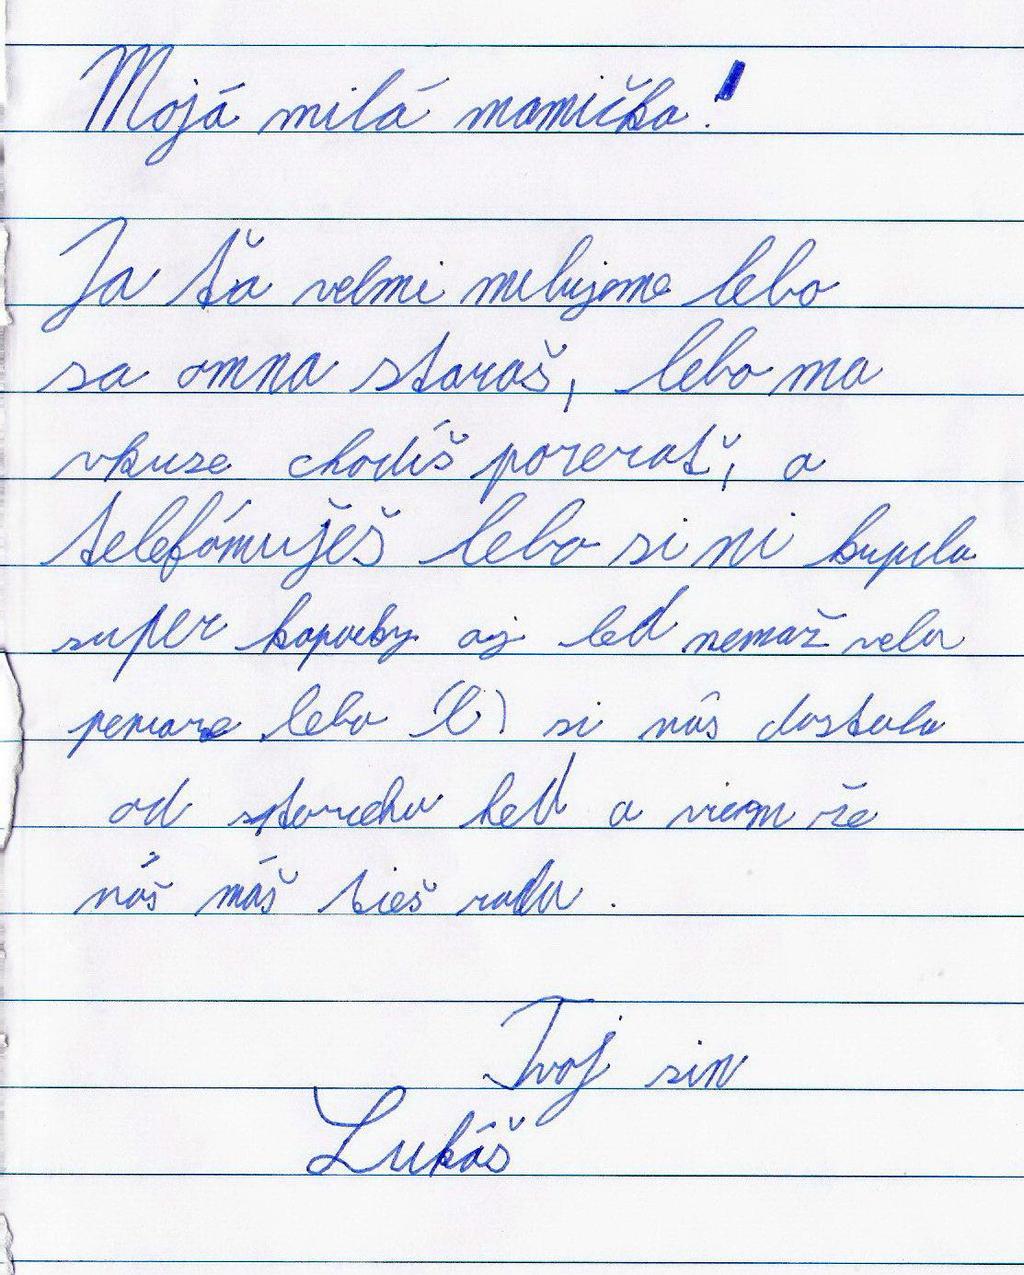 Mojá milá mamička!
Ja ťa velmi milujeme lebo
sa omna staraš, lebo ma
vkuse chodíš pozerať, a
telefónuješ lebo si mi kupila
super kopačky aj keď nemaž vela
penaze lebo si nás dostala
od starcha keď a viem že
nás máš tieš rada.
Tvoj sin
Lukáš